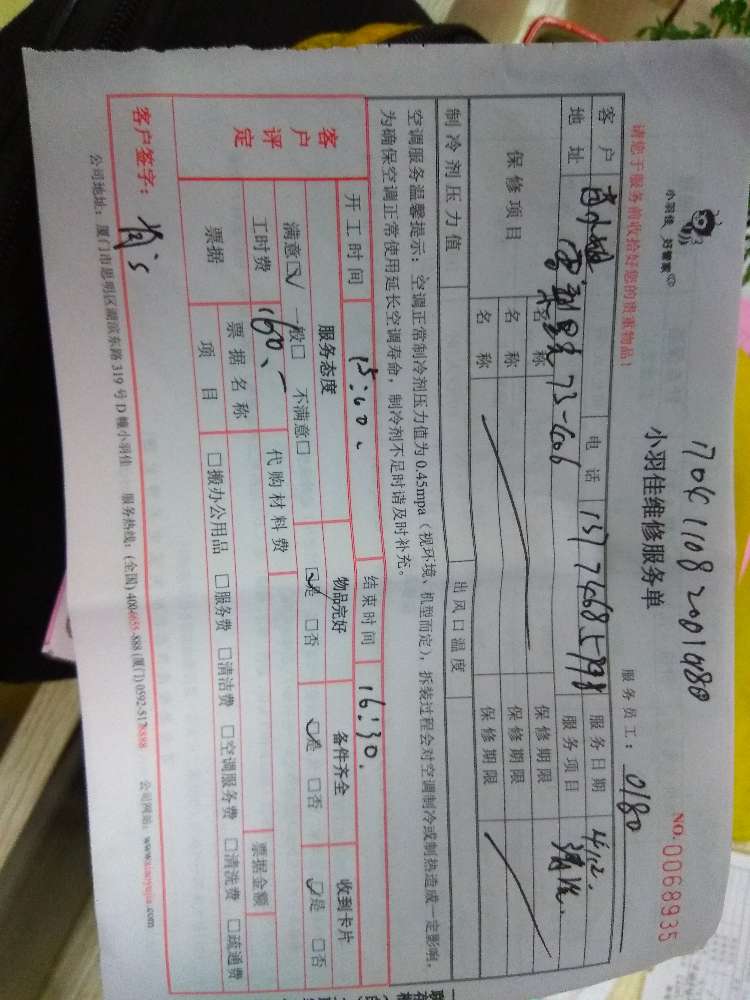 170411082001480
小羽佳 好管家
小羽佳维修服务单
NO.0068935
请您于服务前收拾好您的贵重物品!
服务员工: 0180
客户 电话 服务日期 4/12.
地址 73-606 服务项目 清洗.
保修项目 名称 保修期限
名称 保修期限
名称 保修期限
制冷剂压力值 出风口温度
空调服务温馨提示: 空调正常制冷剂压力值为0.45mpa(视环境、机型而定), 拆装过程会对空调制冷或制热造成一定影响,
为确保空调正常使用延长空调寿命, 制冷剂不足时请及时补充。
开工时间 15:00、 结束时间 16:30.
客户评定 服务态度 物品完好 备件齐全 收到卡片
满意☑ 一般□ 不满意□ ☑是 □否 ☑是 □否 ☑是 □否
工时费 160、- 代购材料费 票据金额
票据 票据名称
项目 □搬办公用品 □服务费 □清洁费 □空调服务费 □清洗费 □疏通费
客户签字:
公司地址: 厦门市思明区湖滨东路319号D幢小羽佳 服务热线: (全国)4004655-888 (厦门)0592-5178888 公司网站: www.xiaoyujia.com